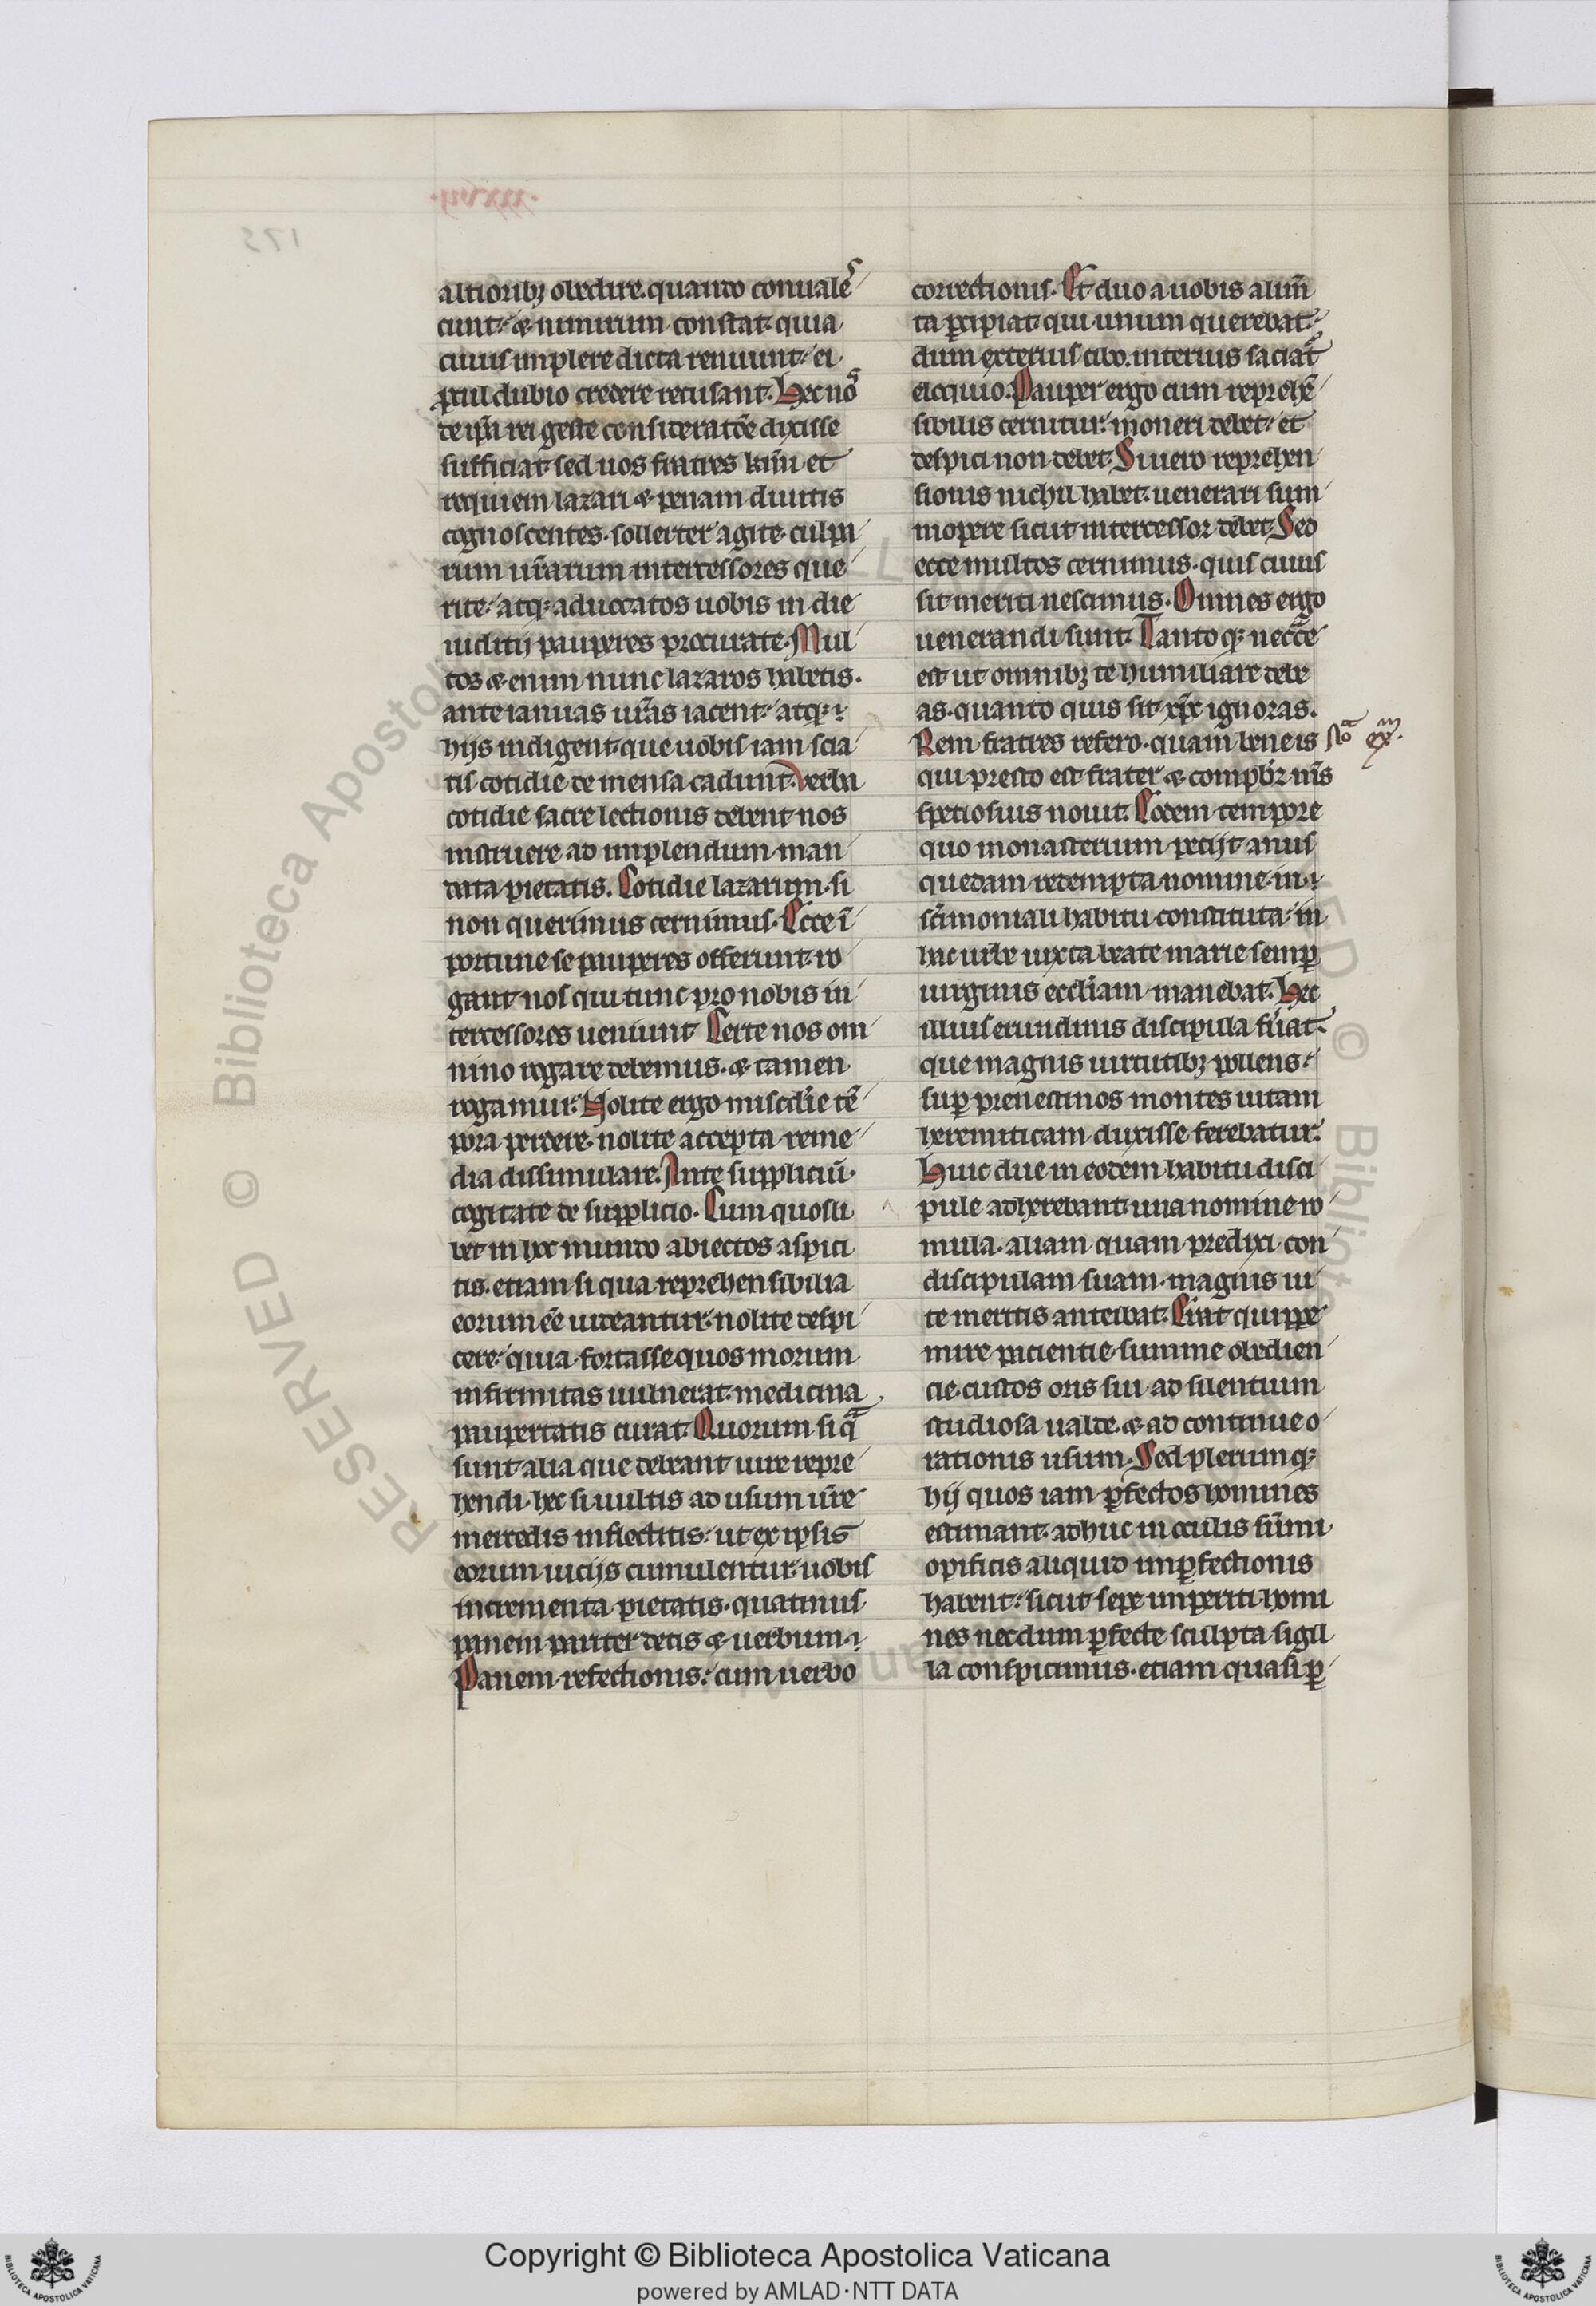 altioribꝫ obedire. quanto conuales
cunt. ⁊ nimirum constat quia
cuius implere dicta renuunt. ei
ꝓcul dubio credere recusant. Hec nos
de ip̄a rei geste consideratōe dixisse
sufficiat sed uos fratres kr̄mi et
requiem lazari ⁊ penam diuitis
cognoscentes. sollerter agite. culpa
rum ur̄arum intercessores que
rite. atqꝫ aduocatos uobis in die
iudicij pauperes procurate. Mul
tos ⁊ enim nunc lazaros habetis.
ante ianuas ur̄as iacent. atqꝫ
hijs indigent que uobis iam sacia
tis cotidie de mensa cadunt. Verba
cotidie sacre lectionis debent nos
instruere ad implendum man
data pietatis. Cotidie lazarum si
non querimus cernimus. Ecce ī
portune se pauperes offerunt ro
gant nos qui tunc pro nobis in
tercessores ueniunt Certe nos om
nino rogare debemus. ⁊ tamen
rogamur. Nolite ergo misc̄die tē
pora perdere. nolite accepta reme
dia dissimulare. Ante suppliciū.
cogitate de supplicio. Cum quosli
bet in hoc mundo abiectos aspici
tis. etiam si qua reprehensibilia
eorum ēe uideantur. nolite despi
cere. quia fortasse quos morum
infirmitas uulnerat. medicina
paupertatis curat. Quorum si qᵃ
sunt talia que debeant iure repre
hendi. hec si uultis ad usum ur̄e
mercedis inflectitis. ut ex ipsis
eorum uicijs cumulentur uobis
incrementa pietatis. quatinus
panem pariter detis ⁊ uerbum.
Panem refectionis. cum uerbo
correctionis. Et duo a uobis alim̄
ta ꝑcipiat qui unum querebat.
dum exterius cibo. interius saciat᷑
eloquio. Pauper ergo cum reprehē
sibilis cernitur. moneri debet. et
despici non debet. Si uero reprehen
sionis nichil habet. uenerari sum
mopere sicut intercessor debet. Sed
ecce multos cernimus. quis cuius
sit meriti nescimus. Omnes ergo
uenerandi sunt. Tantoqꝫ necc̄e
est ut omnibꝫ te humiliare debe
as. quanto quis sit xp̄c ignoras.
Rem fratres refero. quam bene is
qui presto est frater ⁊ compbr̄ ms̄
speciosius nouit. Eodem tempore
quo monasterium petijt anus
quedam redempta nomine. in
sc̄imoniali habitu constituta. in
hac urbe iuxta beate marie semꝑ
uirginis eccliam manebat. Hec
illius erundinis discipula fu̾at.
que magnis uirtutibꝫ pollens.
suꝑ prenestinos montes uitam
heremiticam duxisse ferebatur.
Huic due in eodem habitu disci
pule adherebant. una nomine ro
mula. aliam quam predixi con
discipulam suam. magnis ui
te meritis anteibat. Erat quippe
mire pacientie. summe obedien
cie. custos oris sui ad silentium
studiosa ualde. ⁊ ad continue o
rationis usum. Sed plerumqꝫ
hij quos iam ꝑfectos homines
estimant. adhuc in oculis sūmi
opificis aliquid imꝑfectionis
habent. sicut sepe imperiti homi
nes necdum ꝑfecte sculpta sigil
la conspicimus. etiam quasi ꝑ
RESERVED © Biblioteca Apostolica
Copyright © Biblioteca Apostolica Vaticana
powered by AMLAD·NTT DATA